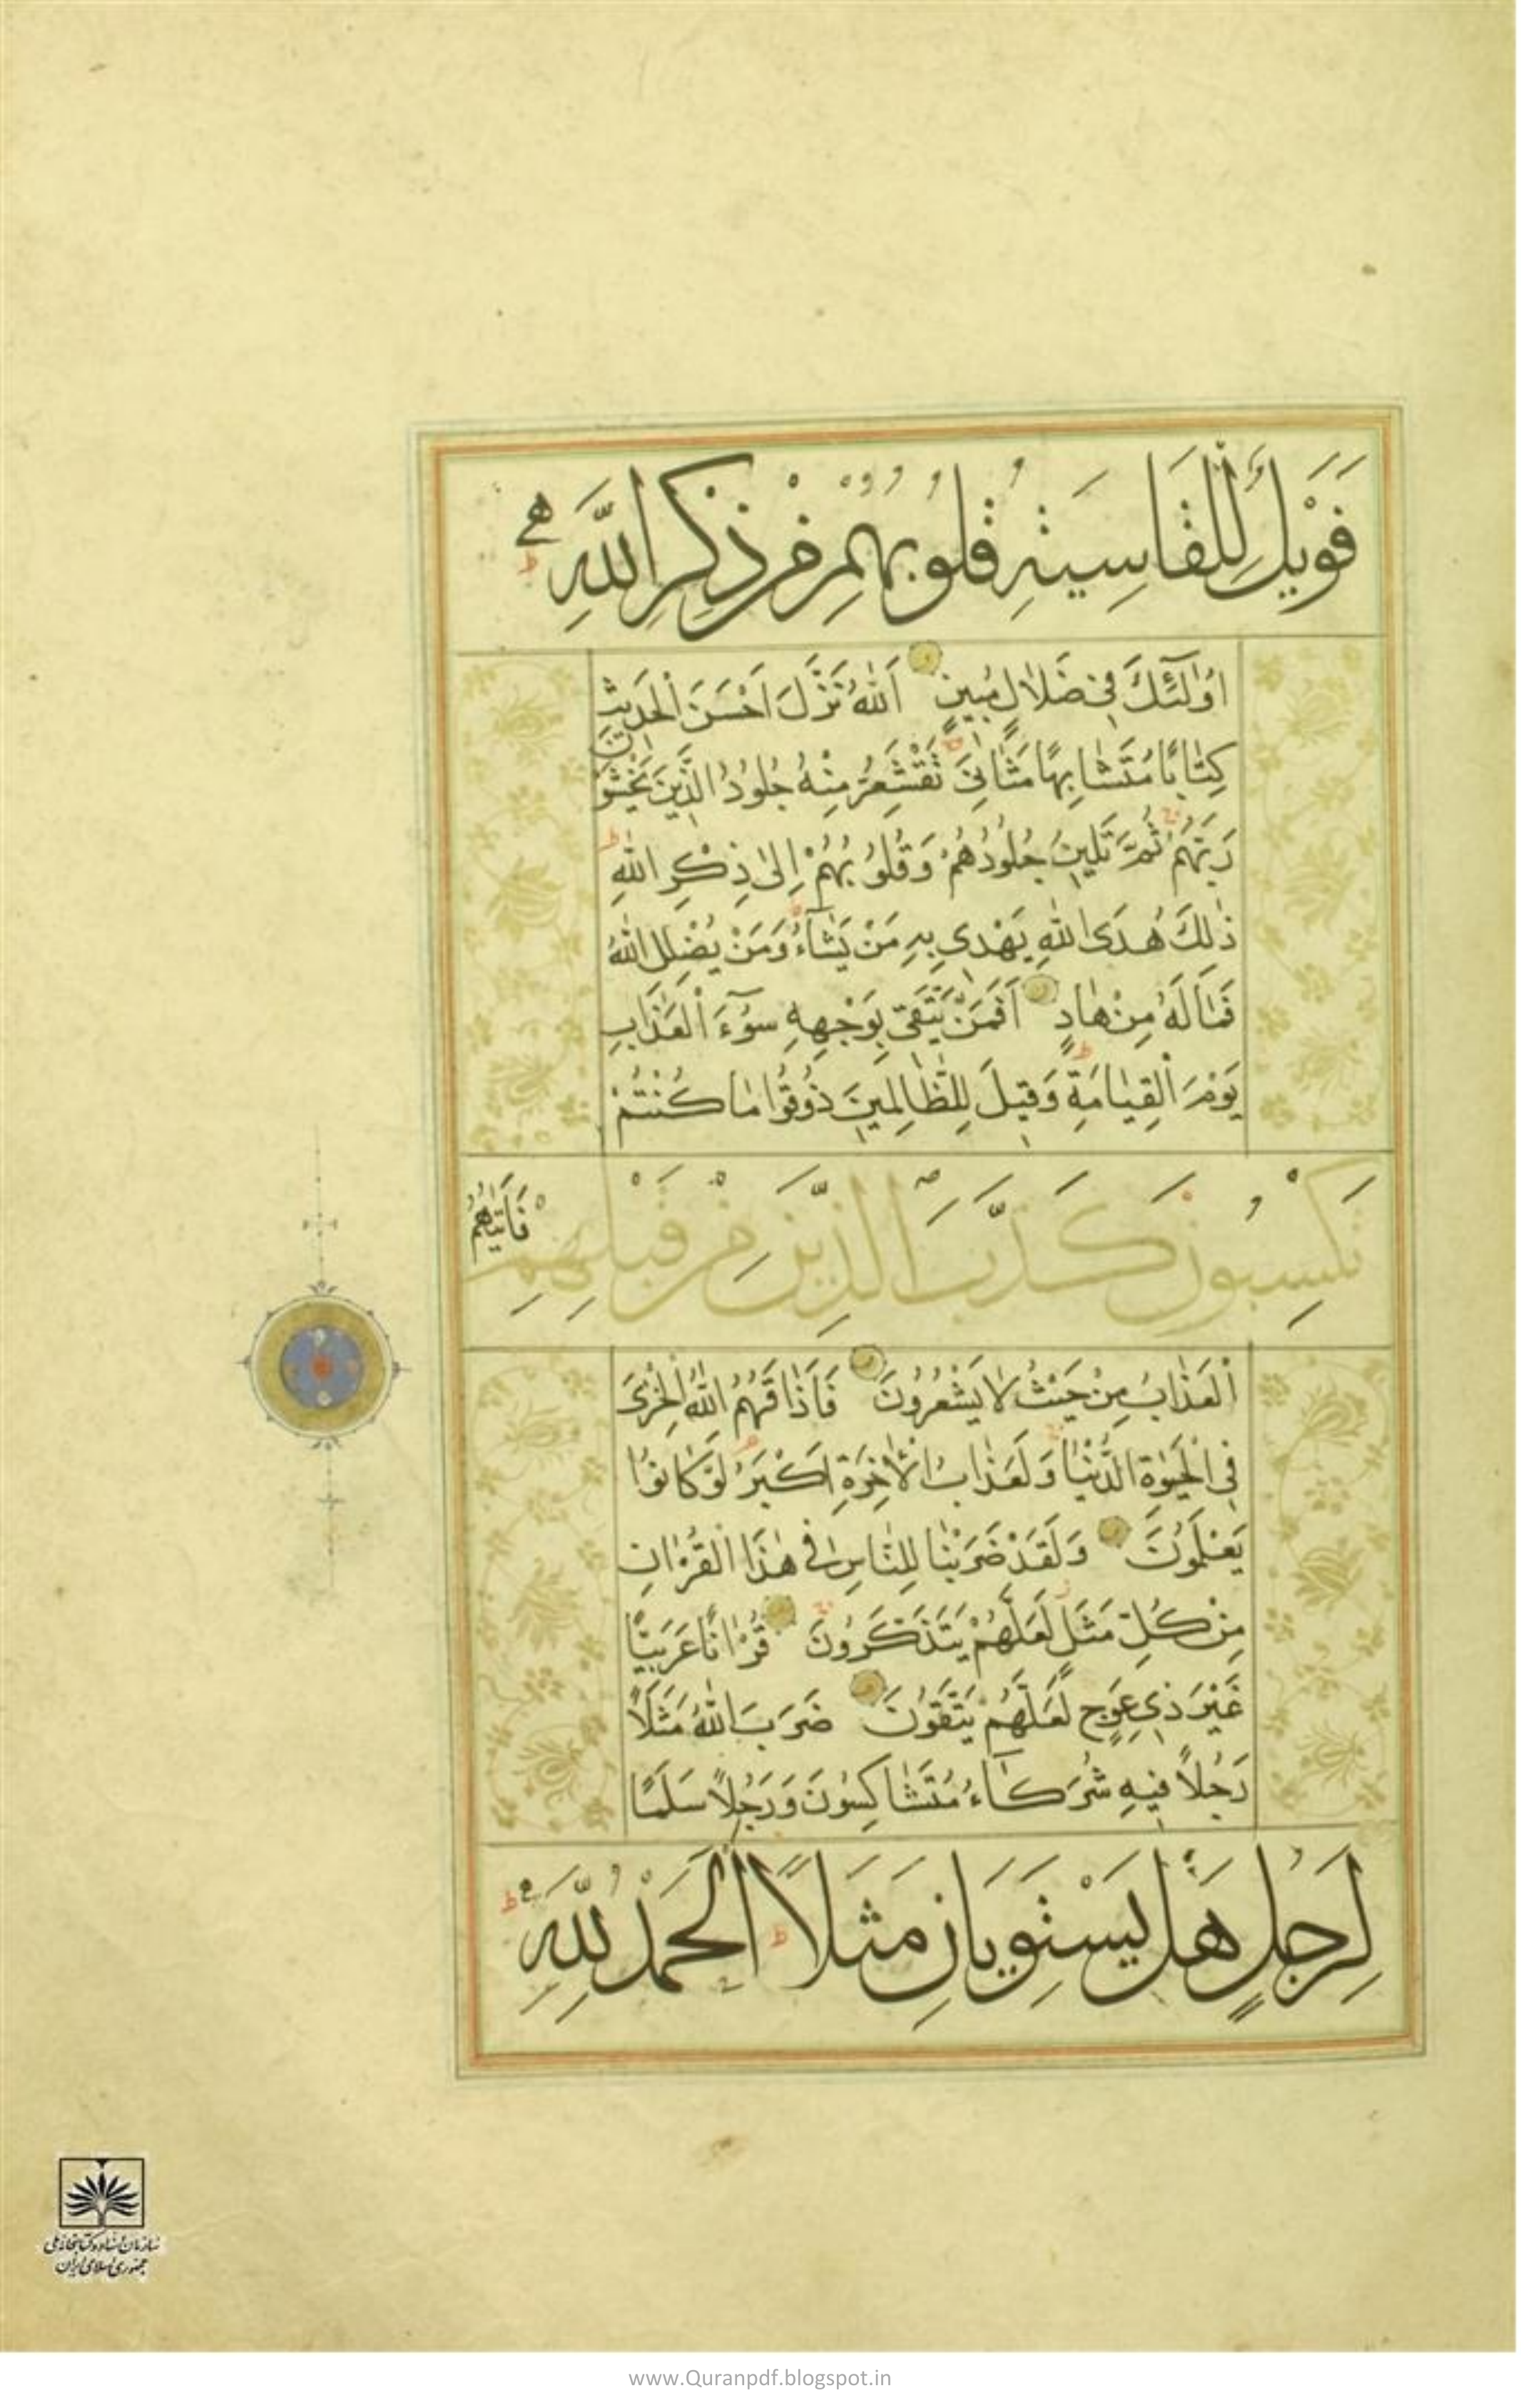 فَوَيْلٌ لِلْقَاسِيَةِ قُلُوبُهُمْ مِنْ ذِكْرِ اللّٰهِ ط
اُولٰٓئِكَ فِي ضَلَالٍ مُبِينٍ اَللّٰهُ نَزَّلَ اَحْسَنَ الْحَدِيثِ
كِتَابًا مُتَشَابِهًا مَثَانِيَ تَقْشَعِرُّ مِنْهُ جُلُودُ الَّذِينَ يَخْشَوْنَ
رَبَّهُمْ ثُمَّ تَلِينُ جُلُودُهُمْ وَقُلُوبُهُمْ اِلٰى ذِكْرِ اللّٰهِ ط
ذٰلِكَ هُدَى اللّٰهِ يَهْدِي بِهِ مَنْ يَشَآءُ وَمَنْ يُضْلِلِ اللّٰهُ
فَمَا لَهُ مِنْ هَادٍ اَفَمَنْ يَتَّقِي بِوَجْهِهِ سُوٓءَ الْعَذَابِ
يَوْمَ الْقِيٰمَةِ ط وَقِيلَ لِلظَّالِمِينَ ذُوقُوا مَا كُنْتُمْ
تَكْسِبُونَ كَذَّبَ الَّذِينَ مِنْ قَبْلِهِمْ فَاَتٰيهُمُ
الْعَذَابُ مِنْ حَيْثُ لَا يَشْعُرُونَ فَاَذَاقَهُمُ اللّٰهُ الْخِزْيَ
فِي الْحَيٰوةِ الدُّنْيَا وَلَعَذَابُ الْاٰخِرَةِ اَكْبَرُ لَوْ كَانُوا
يَعْلَمُونَ وَلَقَدْ ضَرَبْنَا لِلنَّاسِ فِي هٰذَا الْقُرْاٰنِ
مِنْ كُلِّ مَثَلٍ لَعَلَّهُمْ يَتَذَكَّرُونَ قُرْاٰنًا عَرَبِيًّا
غَيْرَ ذِي عِوَجٍ لَعَلَّهُمْ يَتَّقُونَ ضَرَبَ اللّٰهُ مَثَلًا
رَجُلًا فِيهِ شُرَكَآءُ مُتَشَاكِسُونَ وَرَجُلًا سَلَمًا
لِرَجُلٍ هَلْ يَسْتَوِيَانِ مَثَلًا ط اَلْحَمْدُ لِلّٰهِ ط
سازمان اسناد و کتابخانه ملی
جمهوری اسلامی ایران
www.Quranpdf.blogspot.in